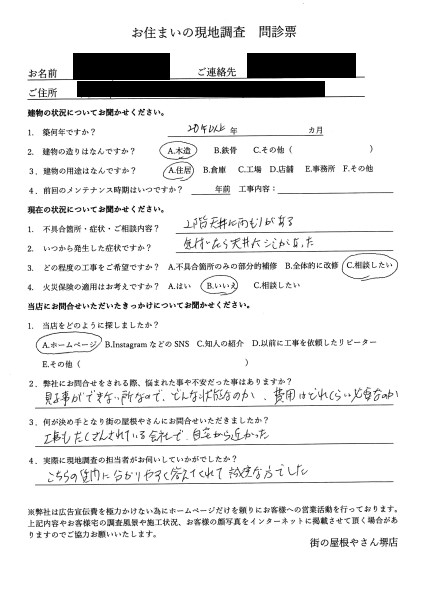 お住まいの現地調査　問診票
お名前　ご連絡先
ご住所
建物の状況についてお聞かせください。
1. 築何年ですか？　20年以上 年　カ月
2. 建物の造りはなんですか？　A.木造　B.鉄骨　C.その他（　）
3. 建物の用途はなんですか？　A.住居　B.倉庫　C.工場　D.店舗　E.事務所　F.その他
4. 前回のメンテナンス時期はいつですか？　年前　工事内容：
現在の状況についてお聞かせください。
1. 不具合箇所・症状・ご相談内容？　2階天井に雨もりがある
2. いつから発生した症状ですか？　気付いたら天井にシミがあった
3. どの程度の工事をご希望ですか？　A.不具合箇所のみの部分的補修　B.全体的に改修　C.相談したい
4. 火災保険の適用はお考えですか？　A.はい　B.いいえ　C.相談したい
当店にお問合せいただいたきっかけについてお聞かせください。
1. 当店をどのように探しましたか？
A.ホームページ　B.Instagram などの SNS　C.知人の紹介　D.以前に工事を依頼したリピーター
E.その他（　）
2. 弊社にお問合せをされる際、悩まれた事や不安だった事はありますか？
見る事ができない所なので、どんな状態なのか、費用はどれくらい必要なのか
3. 何が決め手となり街の屋根やさんにお問合せいただきましたか？
工事もたくさんされている会社で、自宅から近かった
4. 実際に現地調査の担当者がお伺いしていかがでしたか？
こちらの質問に分かりやすく答えてくれて誠実な方でした
※弊社は広告宣伝費を極力かけない為にホームページだけを頼りにお客様への営業活動を行っております。
上記内容やお客様宅の調査風景や施工状況、お客様の顔写真をインターネットに掲載させて頂く場合があ
りますのでご協力お願いいたします。
街の屋根やさん堺店